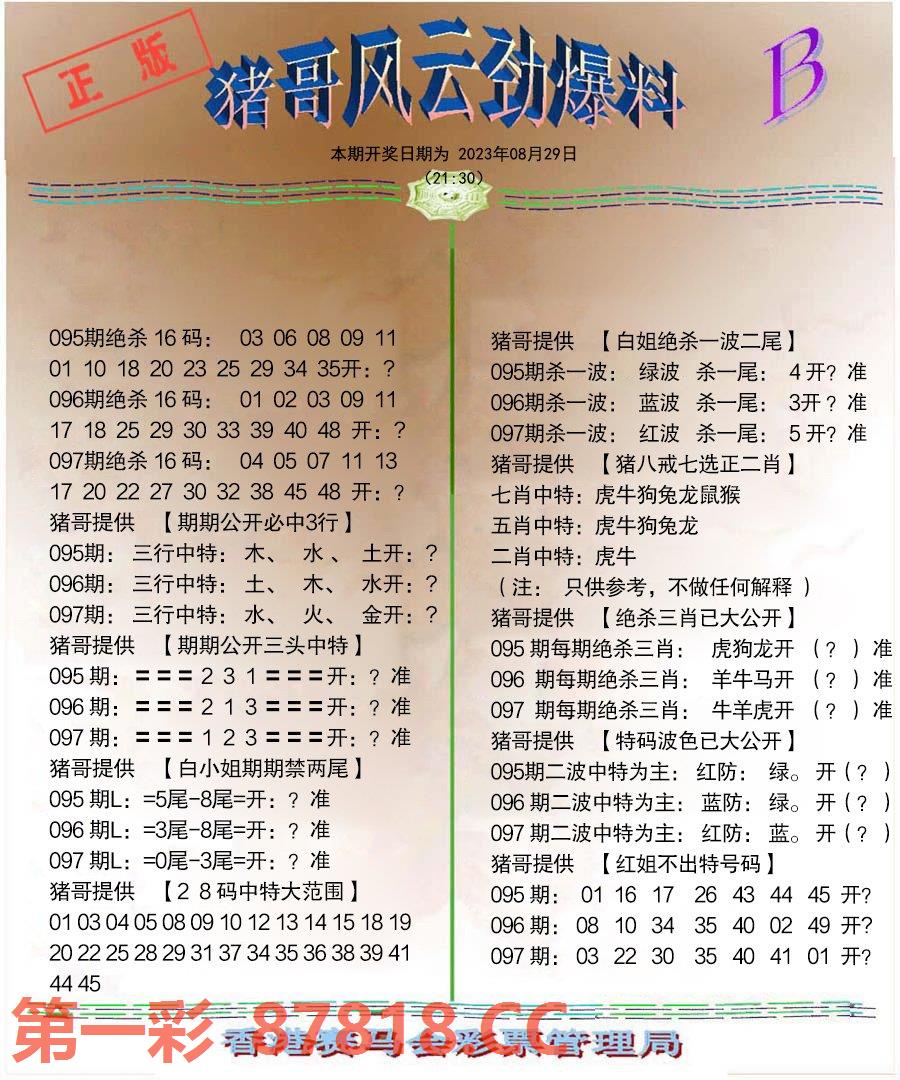 正版
猪哥风云劲爆料
B
本期开奖日期为 2023年08月29日
(21:30)
095期绝杀 16 码： 03 06 08 09 11
01 10 18 20 23 25 29 34 35开：?
096期绝杀 16 码： 01 02 03 09 11
17 18 25 29 30 33 39 40 48 开：?
097期绝杀 16 码： 04 05 07 11 13
17 20 22 27 30 32 38 45 48 开：?
猪哥提供 【期期公开必中3行】
095期： 三行中特： 木、 水 、 土开：?
096期： 三行中特： 土、 木、 水开：?
097期： 三行中特： 水、 火、 金开：?
猪哥提供 【期期公开三头中特】
095 期：＝＝＝２３１＝＝＝开：? 准
096 期：＝＝＝２１３＝＝＝开：? 准
097 期：＝＝＝１２３＝＝＝开：? 准
猪哥提供 【白小姐期期禁两尾】
095 期L：=5尾-8尾=开：? 准
096 期L：=3尾-8尾=开：? 准
097 期L：=0尾-3尾=开：? 准
猪哥提供 【２８码中特大范围】
01 03 04 05 08 09 10 12 13 14 15 18 19
20 22 25 28 29 31 37 34 35 36 38 39 41
44 45
猪哥提供 【白姐绝杀一波二尾】
095期杀一波： 绿波 杀一尾： 4 开? 准
096期杀一波： 蓝波 杀一尾： 3开 ? 准
097期杀一波： 红波 杀一尾： 5 开? 准
猪哥提供 【猪八戒七选正二肖】
七肖中特：虎牛狗兔龙鼠猴
五肖中特：虎牛狗兔龙
二肖中特：虎牛
（注： 只供参考，不做任何解释 ）
猪哥提供 【绝杀三肖已大公开】
095 期每期绝杀三肖： 虎狗龙开 （? ）准
096 期每期绝杀三肖： 羊牛马开 （? ）准
097 期每期绝杀三肖： 牛羊虎开 （? ）准
猪哥提供 【特码波色已大公开】
095期二波中特为主： 红防： 绿。 开（? ）
096 期二波中特为主： 蓝防： 绿。 开（? ）
097 期二波中特为主： 红防： 蓝。 开（? ）
猪哥提供 【红姐不出特号码】
095 期： 01 16 17 26 43 44 45 开?
096 期： 08 10 34 35 40 02 49 开?
097 期： 03 22 30 35 40 41 01 开?
第一彩 87818.CC
香港赛马会彩票管理局